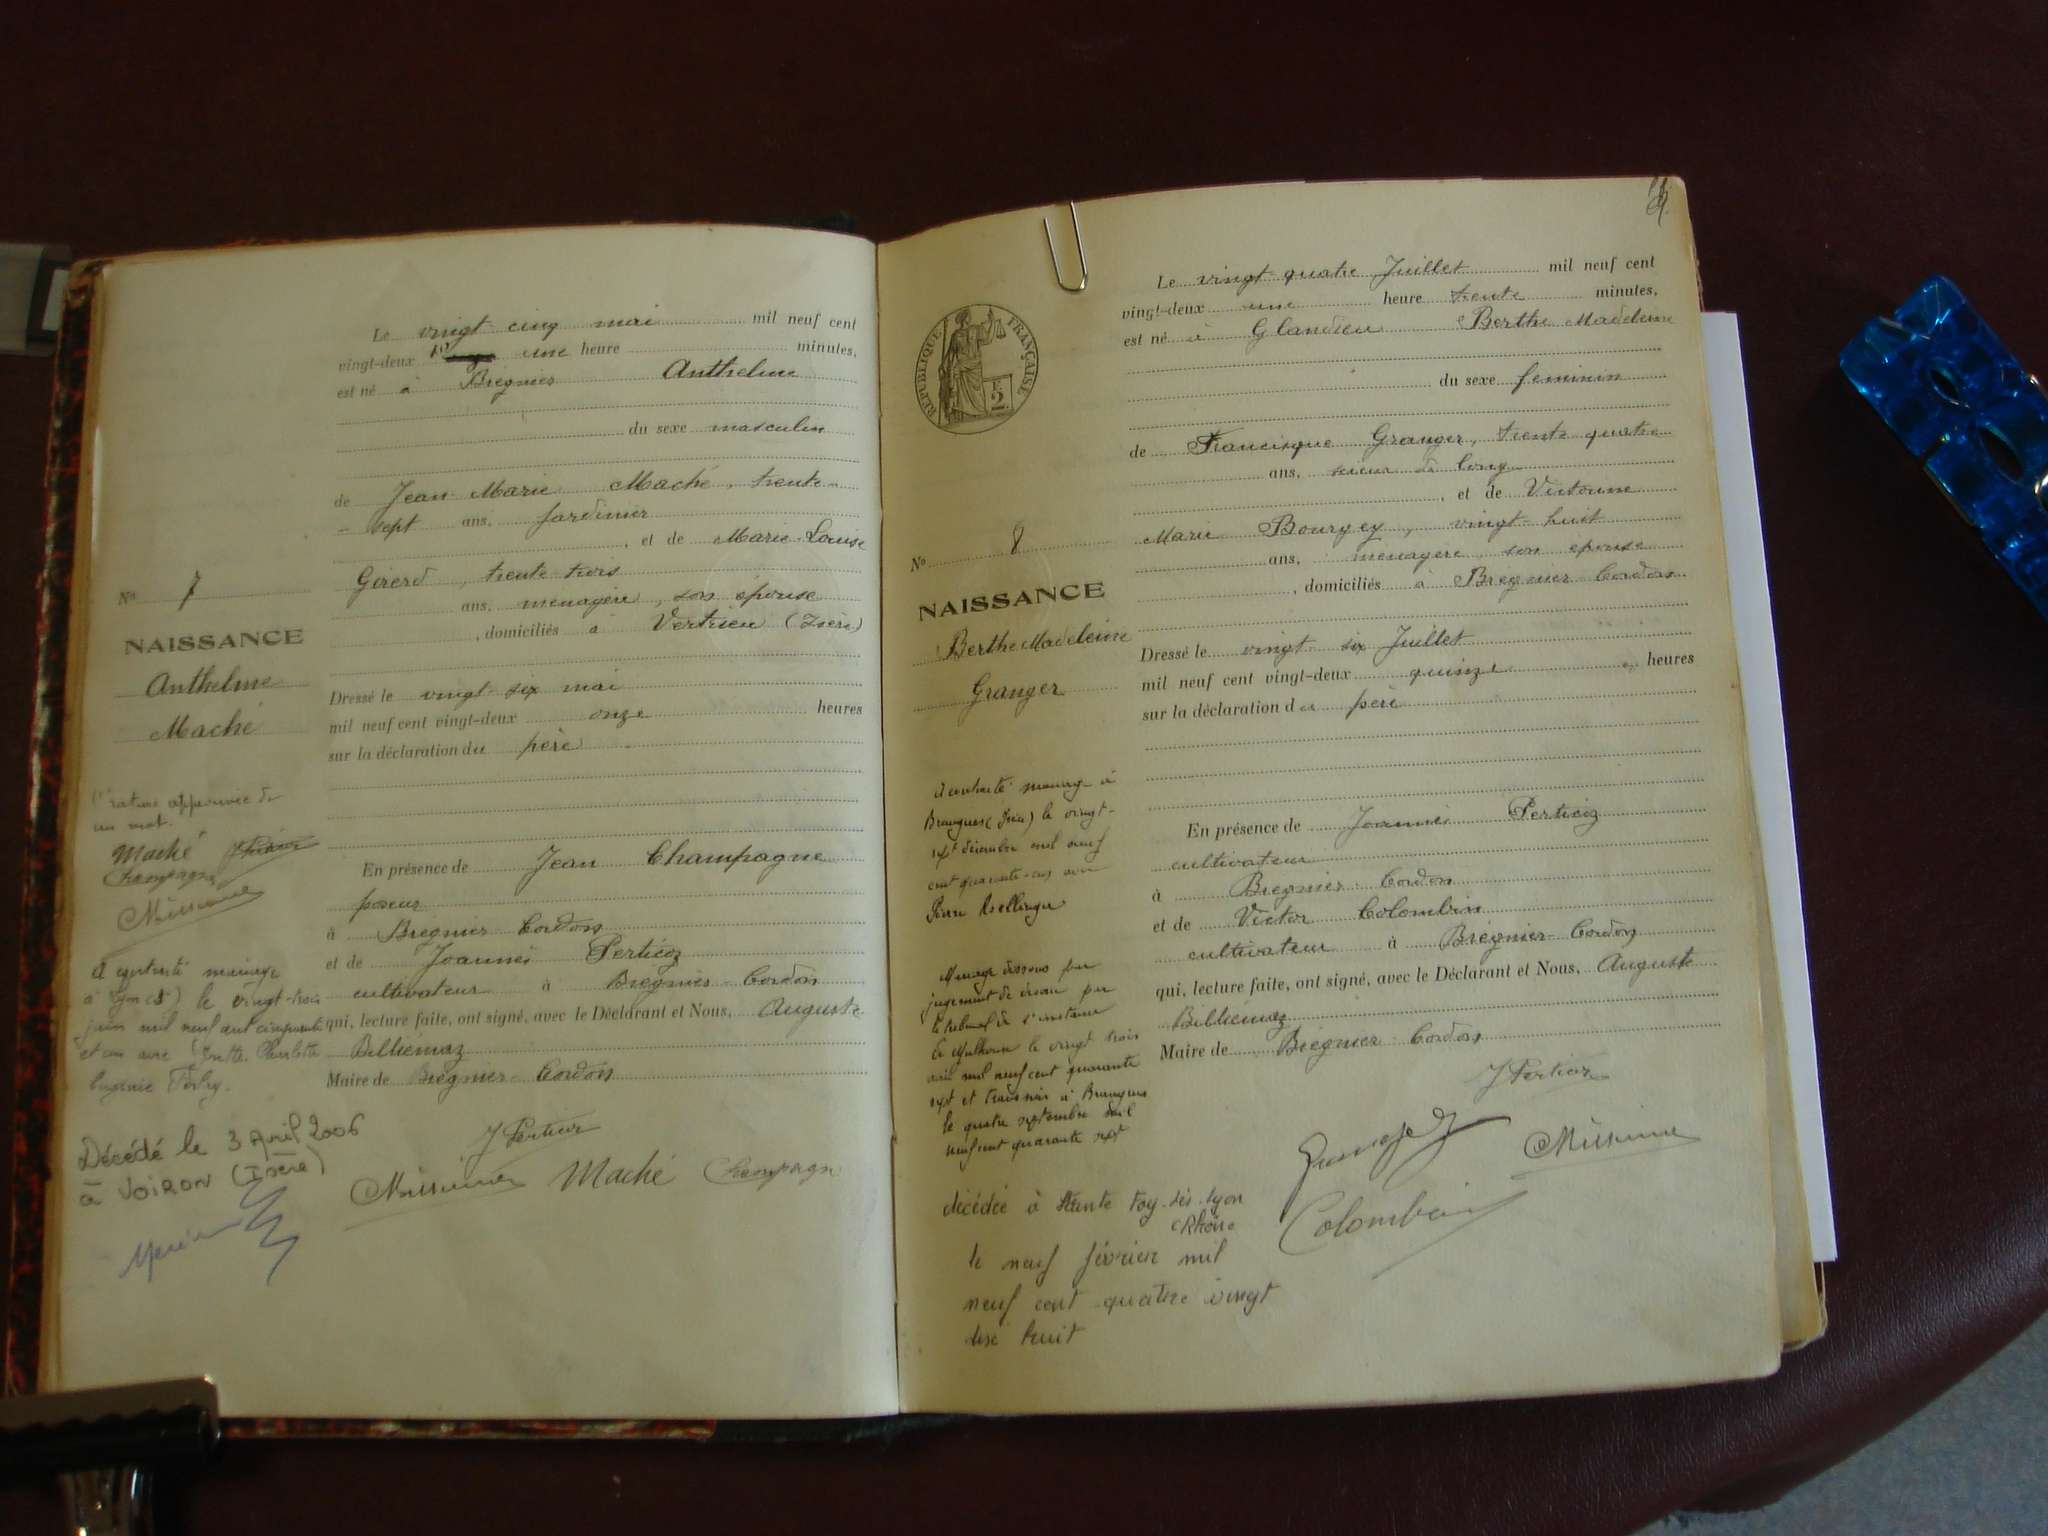 Le vingt cinq mai mil neuf cent
vingt-deux une heure minutes,
est né à Brégnier Anthelme
du sexe masculin
de Jean Marie Maché, trente-
sept ans, jardinier
, et de Marie-Louise
Girerd, trente trois
ans, ménagère, son épouse
, domiciliés à Vertrieu (Isère)
Dressé le vingt-six mai
mil neuf cent vingt-deux onze heures
sur la déclaration du père
En présence de Jean Champagne
poseur
à Brégnier Cordon
et de Joannès Perticoz
cultivateur à Brégnier-Cordon
qui, lecture faite, ont signé, avec le Déclarant et Nous, Auguste
Billiemaz
Maire de Brégnier-Cordon
J Perticoz
Maché Champagne
No 7
NAISSANCE
Anthelme
Maché
(1) rature approuvée de
un mot.
Maché
Champagne
A contracté mariage
à Lyon le vingt-trois
juin mil neuf cent cinquante
et un avec Charlotte
Eugénie
Décédé le 3 Avril 2006
à VOIRON (Isère)
Le vingt-quatre Juillet mil neuf cent
vingt-deux une heure trente minutes,
est né à Glandieu Berthe Madeleine
du sexe féminin
de Francisque Granger, trente quatre
ans, scieur de long
, et de Victorine
Marie Bourgey, vingt-huit
ans, ménagère, son épouse
, domiciliés à Brégnier-Cordon
Dressé le vingt-six Juillet
mil neuf cent vingt-deux quinze heures
sur la déclaration du père
En présence de Joannès Perticoz
cultivateur
à Brégnier-Cordon
et de Victor Colombin
cultivateur à Brégnier-Cordon
qui, lecture faite, ont signé, avec le Déclarant et Nous, Auguste
Billiemaz
Maire de Brégnier-Cordon
J Perticoz
Colombin
RÉPUBLIQUE FRANÇAISE
2
No 8
NAISSANCE
Berthe Madeleine
Granger
A contracté mariage à
Brangues (Isère) le vingt-
sept décembre mil neuf
cent quarante-cinq avec
Pierre
Mariage dissous par
jugement de divorce par
le tribunal de 1e instance
de Mulhouse le vingt trois
avril mil neuf cent quarante
sept et transcrit à Brangues
le quatre septembre mil
neuf cent quarante sept
décédée à Sainte Foy-lès-Lyon
(Rhône
le neuf février mil
neuf cent quatre vingt
dix huit